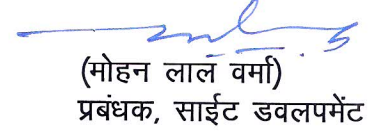 (मोहन लाल वर्मा)
प्रबंधक, साईट डवलपमेंट